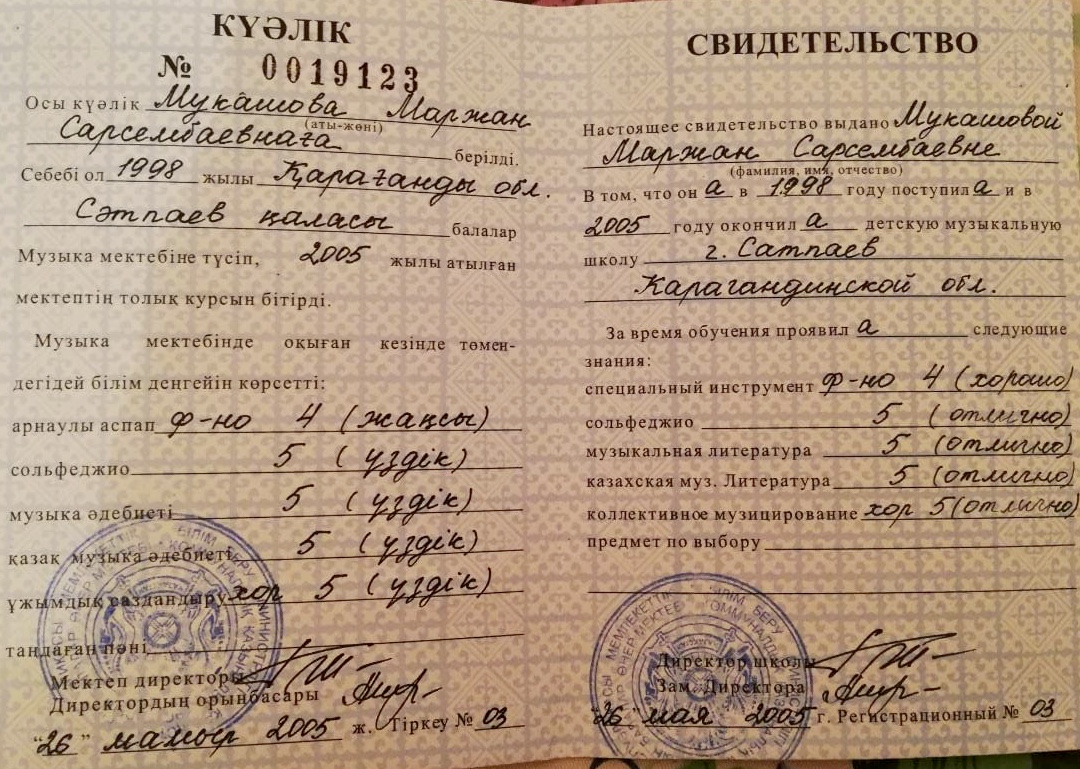 КУӘЛІК
№ 0019123
Осы куәлік Мукашова Маржан
(аты-жөні)
Сарсембаевнаға берілді.
Себебі ол 1998 жылы Қарағанды обл.
Сәтпаев қаласы балалар
Музыка мектебіне түсіп, 2005 жылы атылған
мектептің толық курсын бітірді.
Музыка мектебінде оқыған кезінде төмен-
дегідей білім денгейін көрсетті:
арнаулы аспап ф-но 4 (жақсы)
сольфеджио 5 (үздік)
музыка әдебиеті 5 (үздік)
қазақ музыка әдебиеті 5 (үздік)
ұжымдық саздандыру хор 5 (үздік)
таңдаған пәні
Мектеп директоры
Директордың орынбасары
"26" мамыр 2005 ж. Тіркеу № 03
СВИДЕТЕЛЬСТВО
Настоящее свидетельство выдано Мукашовой
Маржан Сарсембаевне
(фамилия, имя, отчество)
В том, что он а в 1998 году поступил а и в
2005 году окончил а детскую музыкальную
школу г. Сатпаев
Карагандинской обл.
За время обучения проявил а следующие
знания:
специальный инструмент ф-но 4 (хорошо)
сольфеджио 5 (отлично)
музыкальная литература 5 (отлично)
казахская муз. Литература 5 (отлично)
коллективное музицирование хор 5 (отлично)
предмет по выбору
Директор школы
Зам. Директора
"26" мая 2005 г. Регистрационный № 03